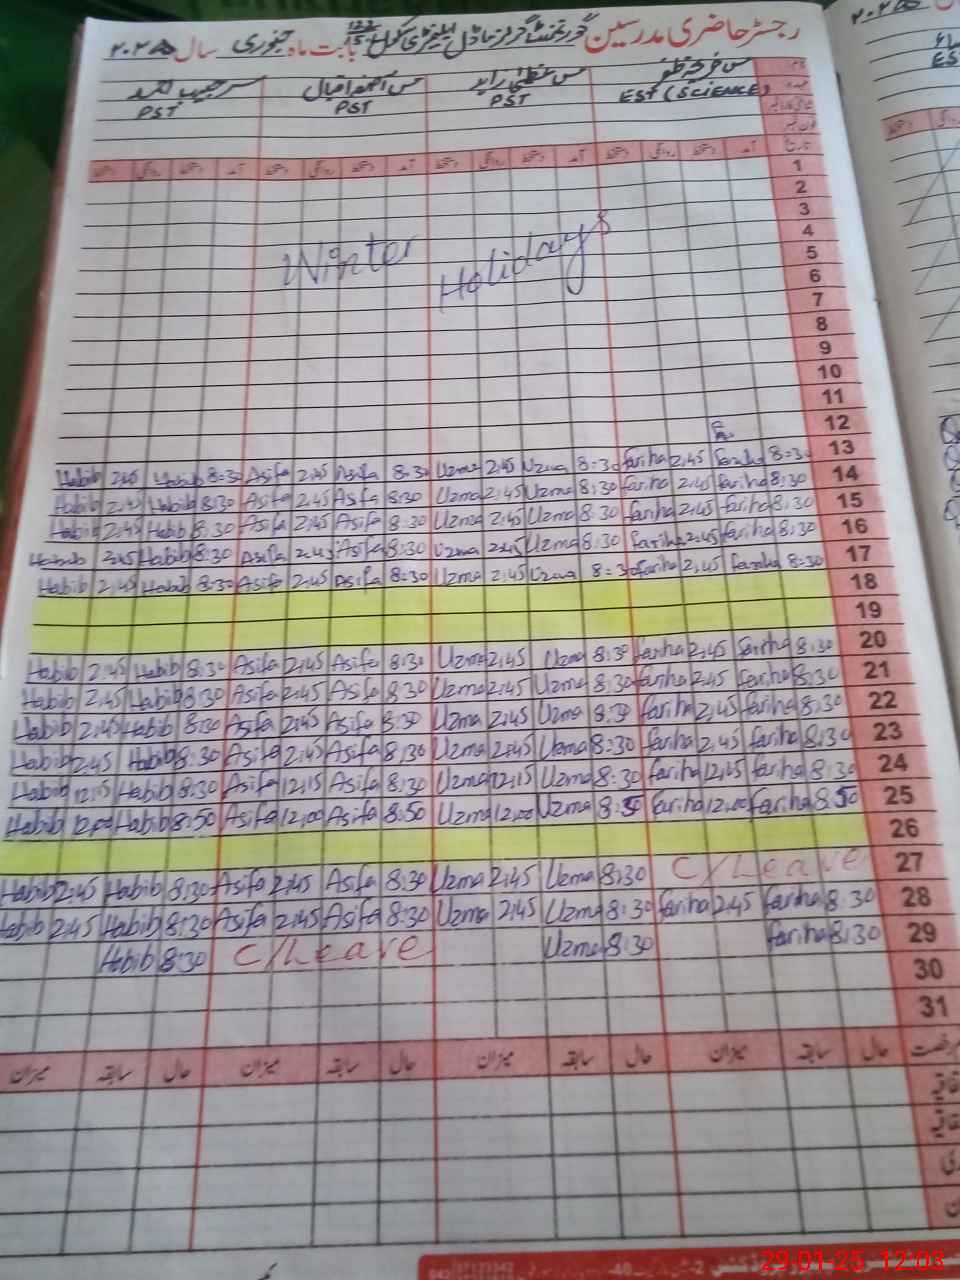 رجسٹر حاضری مدرسین گورنمنٹ گرلز ماڈل ایلیمنٹری سکول بابت ماہ جنوری سال ۲۰۲۵
مس فریحہ ظفر مس عظمیٰ زاہد مس آصفہ اقبال مسز حبیب
EST (SCIENCE) PST PST PST
تاریخ آمد دستخط روانگی دستخط آمد دستخط روانگی دستخط آمد دستخط روانگی دستخط آمد دستخط روانگی دستخط
1
2
3
Winter Holidays
4
5
6
7
8
9
10
11
12
Habib 2:45 Habib 8:30 Asifa 2:45 Asifa 8:30 Uzma 2:45 Uzma 8:30 fariha 2:45 fariha 8:30 13
Habib 2:45 Habib 8:30 Asifa 2:45 Asifa 8:30 Uzma 2:45 Uzma 8:30 fariha 2:45 fariha 8:30 14
Habib 2:45 Habib 8:30 Asifa 2:45 Asifa 8:30 Uzma 2:45 Uzma 8:30 fariha 2:45 fariha 8:30 15
Habib 2:45 Habib 8:30 Asifa 2:45 Asifa 8:30 Uzma 2:45 Uzma 8:30 fariha 2:45 fariha 8:30 16
Habib 2:45 Habib 8:30 Asifa 2:45 Asifa 8:30 Uzma 2:45 Uzma 8:30 fariha 2:45 fariha 8:30 17
18
19
Habib 2:45 Habib 8:30 Asifa 2:45 Asifa 8:30 Uzma 2:45 Uzma 8:30 fariha 2:45 fariha 8:30 20
Habib 2:45 Habib 8:30 Asifa 2:45 Asifa 8:30 Uzma 2:45 Uzma 8:30 fariha 2:45 fariha 8:30 21
Habib 2:45 Habib 8:30 Asifa 2:45 Asifa 8:30 Uzma 2:45 Uzma 8:30 fariha 2:45 fariha 8:30 22
Habib 2:45 Habib 8:30 Asifa 2:45 Asifa 8:30 Uzma 2:45 Uzma 8:30 fariha 2:45 fariha 8:30 23
Habib 12:15 Habib 8:30 Asifa 12:15 Asifa 8:30 Uzma 12:15 Uzma 8:30 fariha 12:15 fariha 8:30 24
Habib 12:00 Habib 8:50 Asifa 12:00 Asifa 8:50 Uzma 12:00 Uzma 8:50 fariha 12:00 fariha 8:50 25
26
Habib 2:45 Habib 8:30 Asifa 2:45 Asifa 8:30 Uzma 2:45 Uzma 8:30 C/Leave 27
Habib 2:45 Habib 8:30 Asifa 2:45 Asifa 8:30 Uzma 2:45 Uzma 8:30 fariha 2:45 fariha 8:30 28
Habib 8:30 C/Leave Uzma 8:30 fariha 8:30 29
30
31
حال سابقہ میزان حال سابقہ میزان حال سابقہ میزان حال سابقہ میزان
29-01-25 12:03